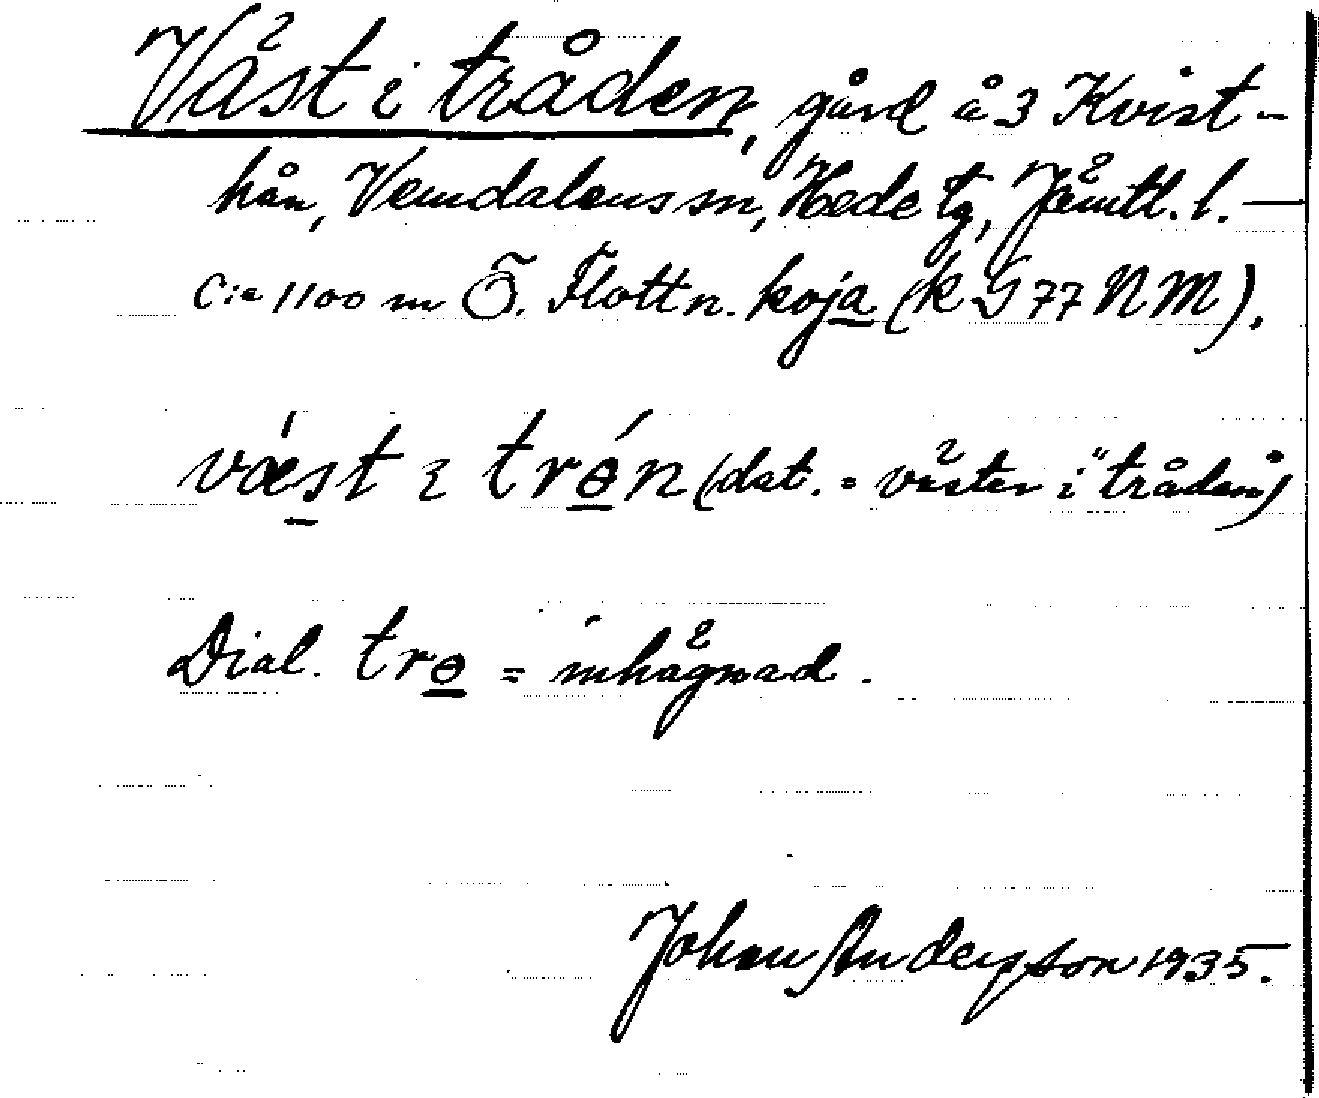 Väst i tråden, gård å 3 Kvist-
hån, Vemdalens sn, Hede tg, Jämtl. l. —
C:a 1100 m Ö. Flottn. koja (k G 77 N M).
væst i trɵ́n (dat. = väster i "tråden)
Dial. trɵ = inhägnad.
Johan Andersson 1935.